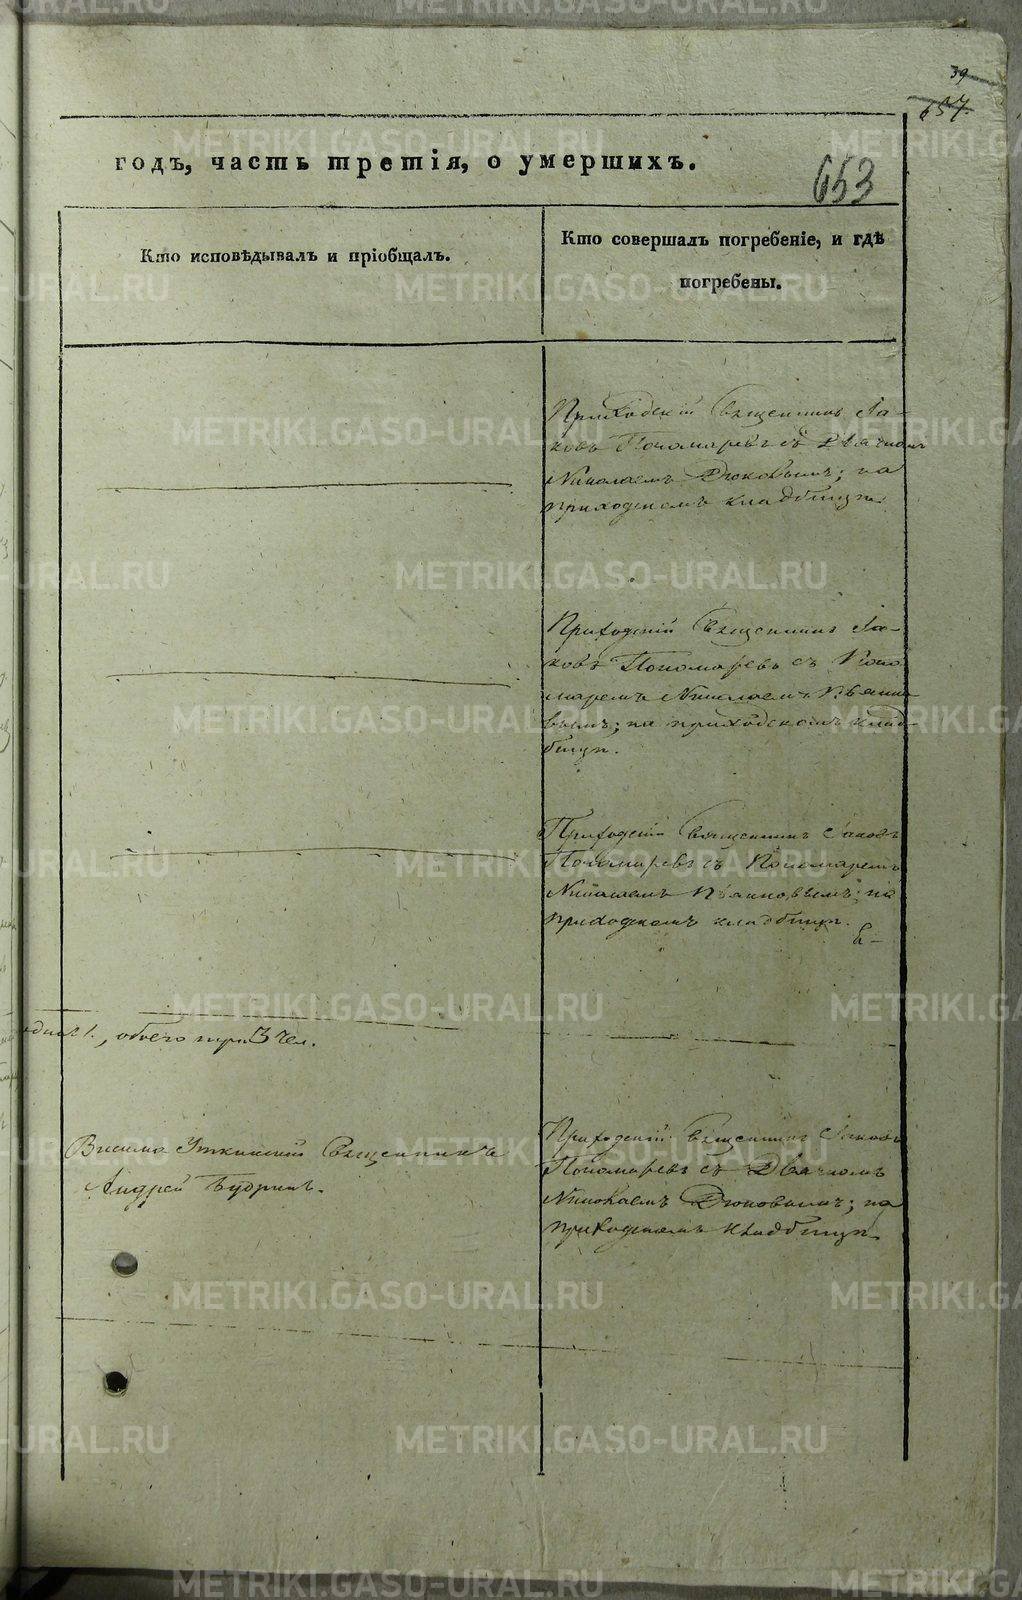 39
657.
годъ, часть третія, о умершихъ.
653
Кто исповѣдывалъ и пріобщалъ.
Кто совершалъ погребеніе, и гдѣ
погребены.
Приходскій Священникъ Іа-
ковъ Пономаревъ съ Дьячкомъ
Николаемъ Дюковымъ; на
приходскомъ кладбищѣ.
Приходскій Священникъ Іа-
ковъ Пономаревъ съ Поно
маремъ Николаемъ
вымъ; на приходскомъ клад-
бищѣ.
Приходскій Священникъ Іаковъ
Пономаревъ съ Пономаремъ
Николаемъ на
приходскомъ кладбищѣ.
1., обоего три 3 чел.
Висимо Уткинскій Священникъ
Андрей Будринъ.
Приходскій Священникъ Іаковъ
Пономаревъ съ Дьячкомъ
Николаемъ Дюковымъ; на
приходскомъ кладбищѣ
METRIKI.GASO-URAL.RU